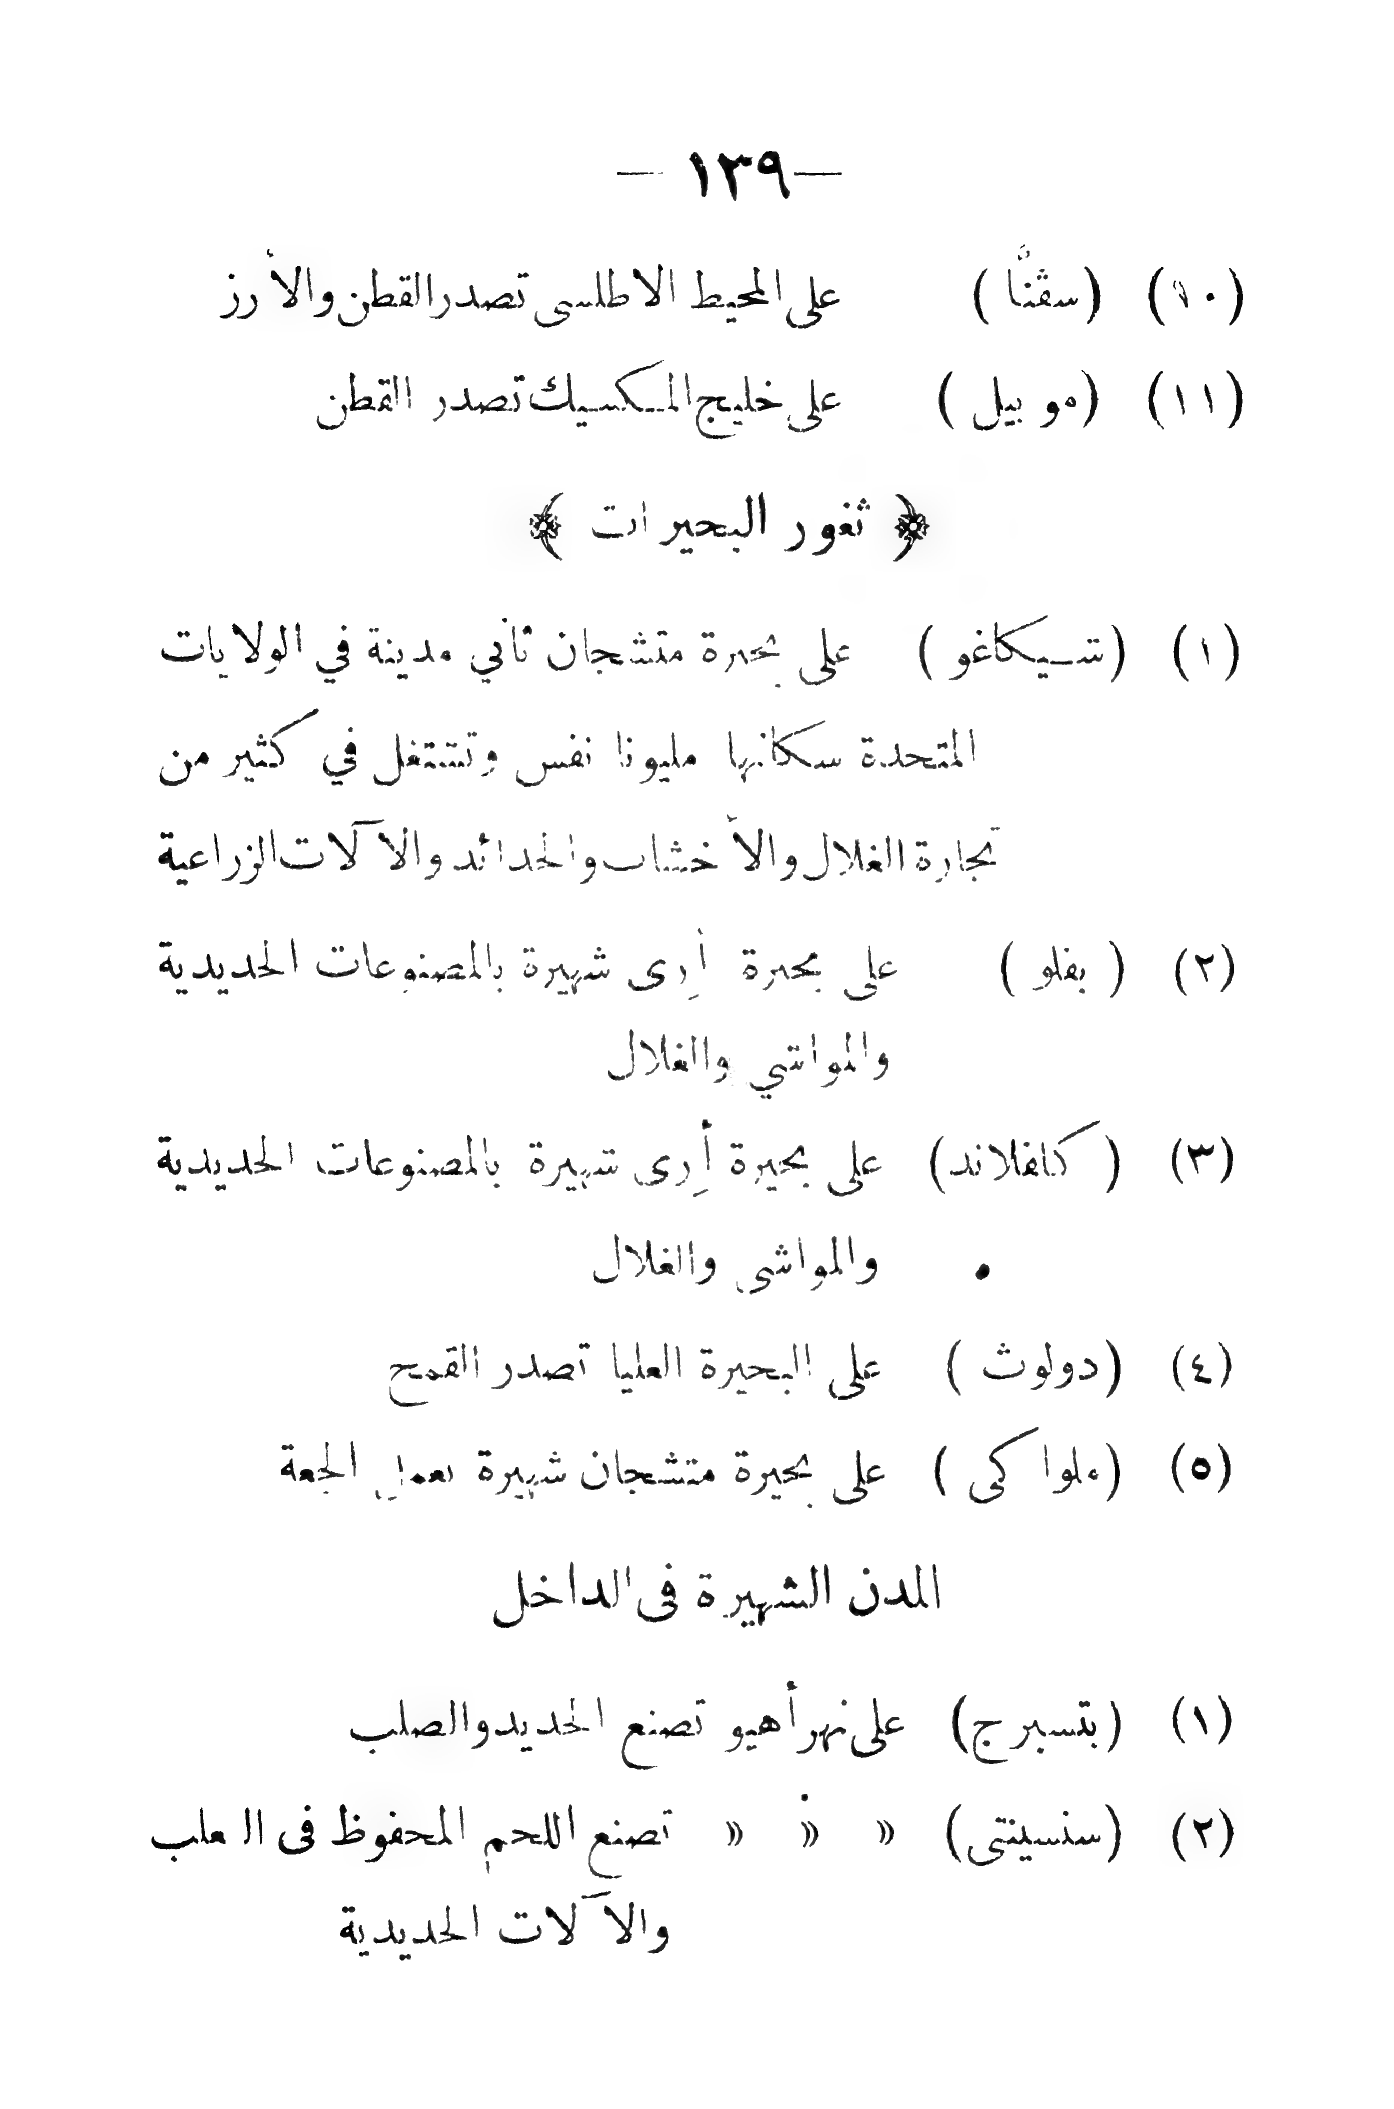 — ١٣٩ —
(١٠) (سڤنَّا) على المحيط الاطلسى تصدر القطن والأرز
(١١) (موبيل) على خليج المكسيك تصدر القطن
﴿ ثغور البحيرات ﴾
(١) (شيكاغو) على بحيرة متشجان ثاني مدينة في الولايات
المتحدة سكانها مليونا نفس وتشتغل في كثير من
تجارة الغلال والأخشاب والحدائد والآلات الزراعية
(٢) (بفلو) على بحيرة أِرى شهيرة بالمصنوعات الحديدية
والمواشي والغلال
(٣) (كلفلاند) على بحيرة أِرى شهيرة بالمصنوعات الحديدية
والمواشى والغلال
(٤) (دولوث) على البحيرة العليا تصدر القمح
(٥) (ملواكى) على بحيرة متشجان شهيرة بعمل الجعة
المدن الشهيرة فى الداخل
(١) (بتسبرج) على نهر أهيو تصنع الحديد والصلب
(٢) (سنسينتى) » » » تصنع اللحم المحفوظ فى العلب
والآلات الحديدية